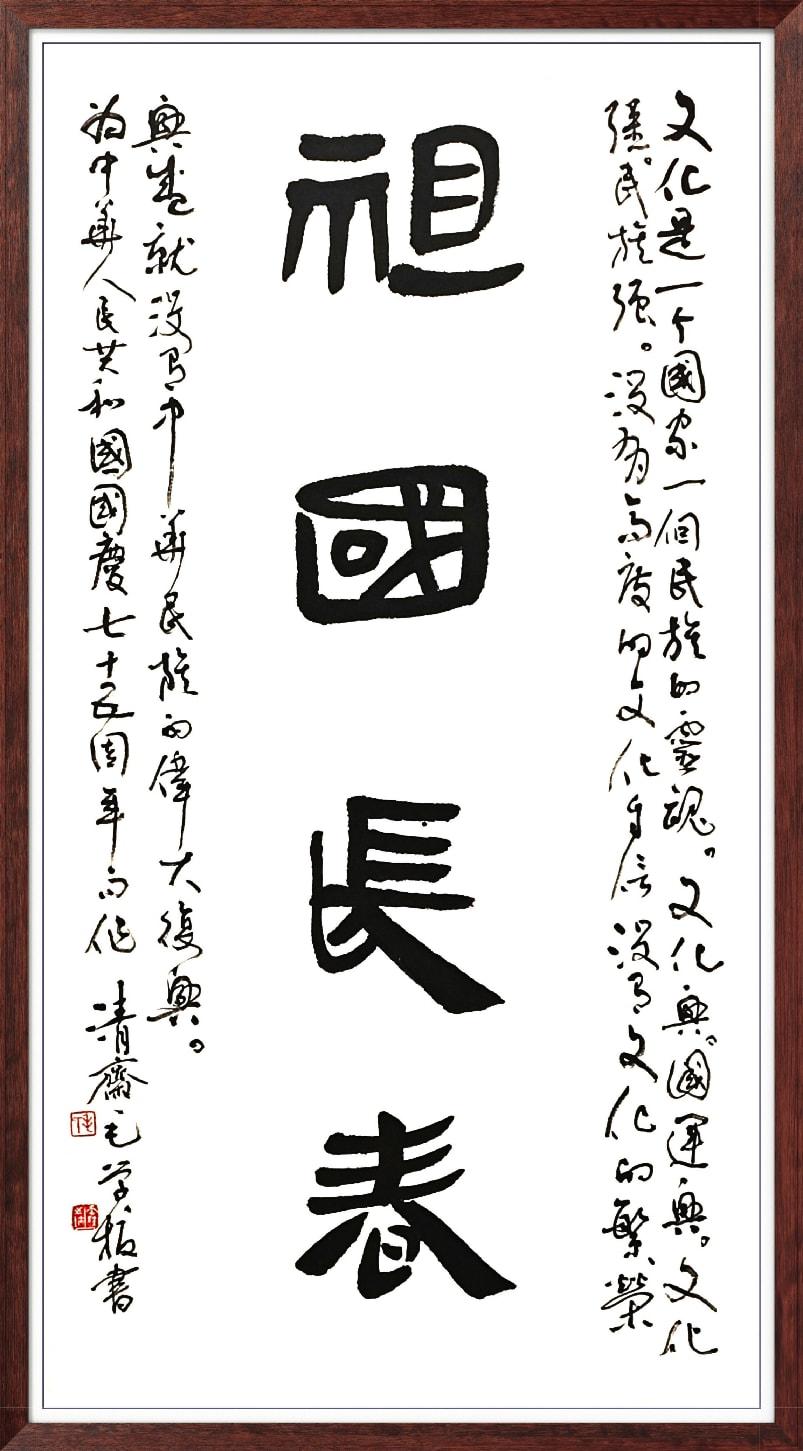 文化是一个國家一個民族的靈魂。文化興。國運興。文化
強。民族强。沒有高度的文化自信沒有文化的繁榮
祖國長春
興盛就沒有中華民族的偉大復興。
为中華人民共和國國慶七十五周年而作 清齋毛学板書